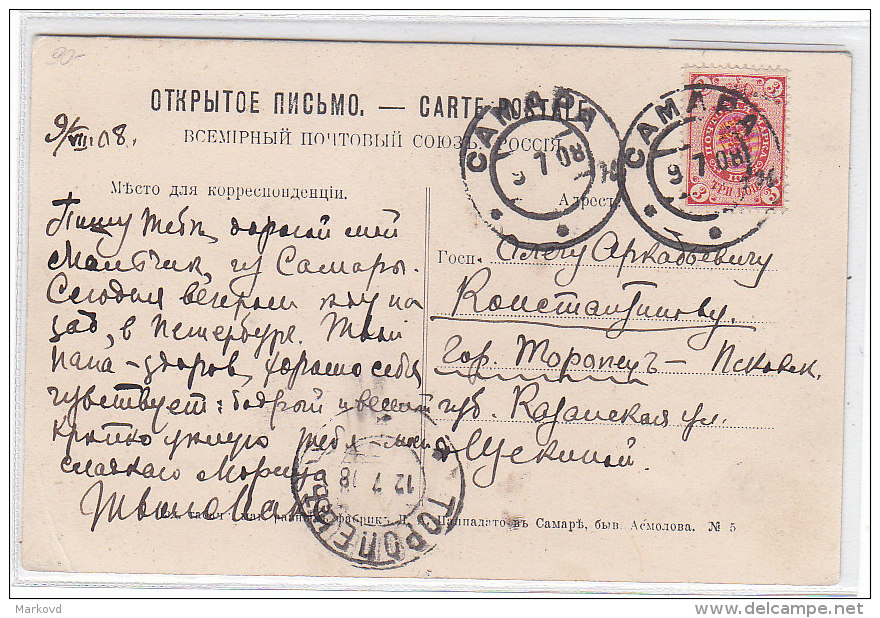 90-
ОТКРЫТОЕ ПИСЬМО. — CARTE POSTALE
ВСЕМІРНЫЙ ПОЧТОВЫЙ СОЮЗЪ. РОССІЯ.
9/VII.08.
САМАРА
9 7 08
САМАРА
9 7 08
3 3
ПОЧТ МАРКА
ТРИ КОП
3 3
Мѣсто для корреспонденціи.
Пишу тебѣ, дорогой мой
Мальчик, из Самары.
Сегодня вечером еду на
зад, в Петербург. Твой
папа - здоров, хорошо себя
чувствует: бодрый и веселый
Крепко целую тебя моего
сладкаго
Твоя Мама
Адрест
Госп. Олегу Аркадьевичу
Константинову.
гор. Торопецъ — Псковск.
губ. Казанская ул.
д. Щукиной.
ТОРОПЕЦЪ
12 7 08
фабрик Паппадато въ Самарѣ, быв Асмолова. № 5
Markovd
www.delcampe.net